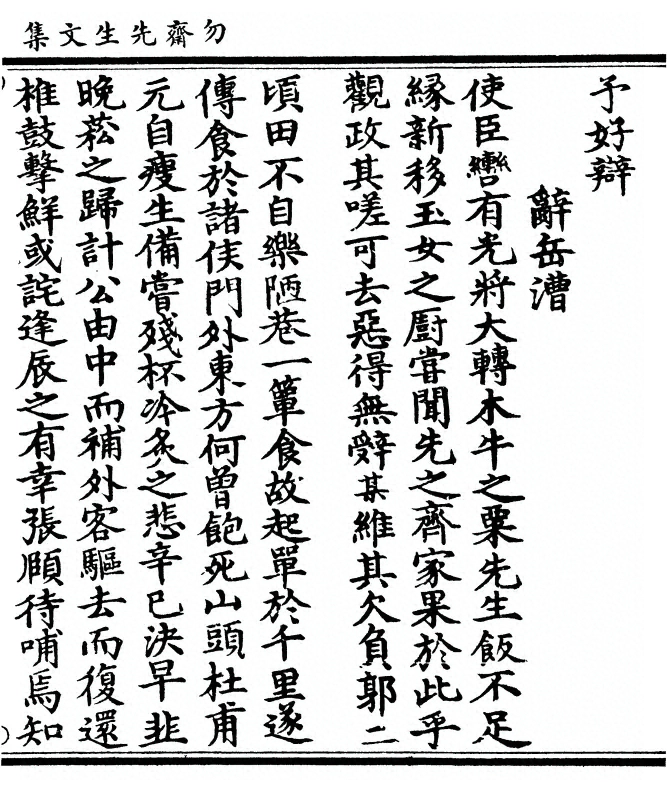 勿齋先生文集
予好辯
辭岳漕
使臣轡有光將大轉木牛之粟先生飯不足
縁新移玉女之厨嘗聞先之齊家果於此乎
觀政其嗟可去惡得無辤某維其欠負郭二
頃田不自樂陋巷一簞食故起單於千里遂
傳食於諸侯門外東方何曾飽死山頭杜甫
元自瘦生備嘗殘杯冷炙之悲辛已決早韭
晚菘之歸計公由中而補外客驅去而復還
椎鼓擊鮮或詫逢辰之有幸張頤待哺焉知